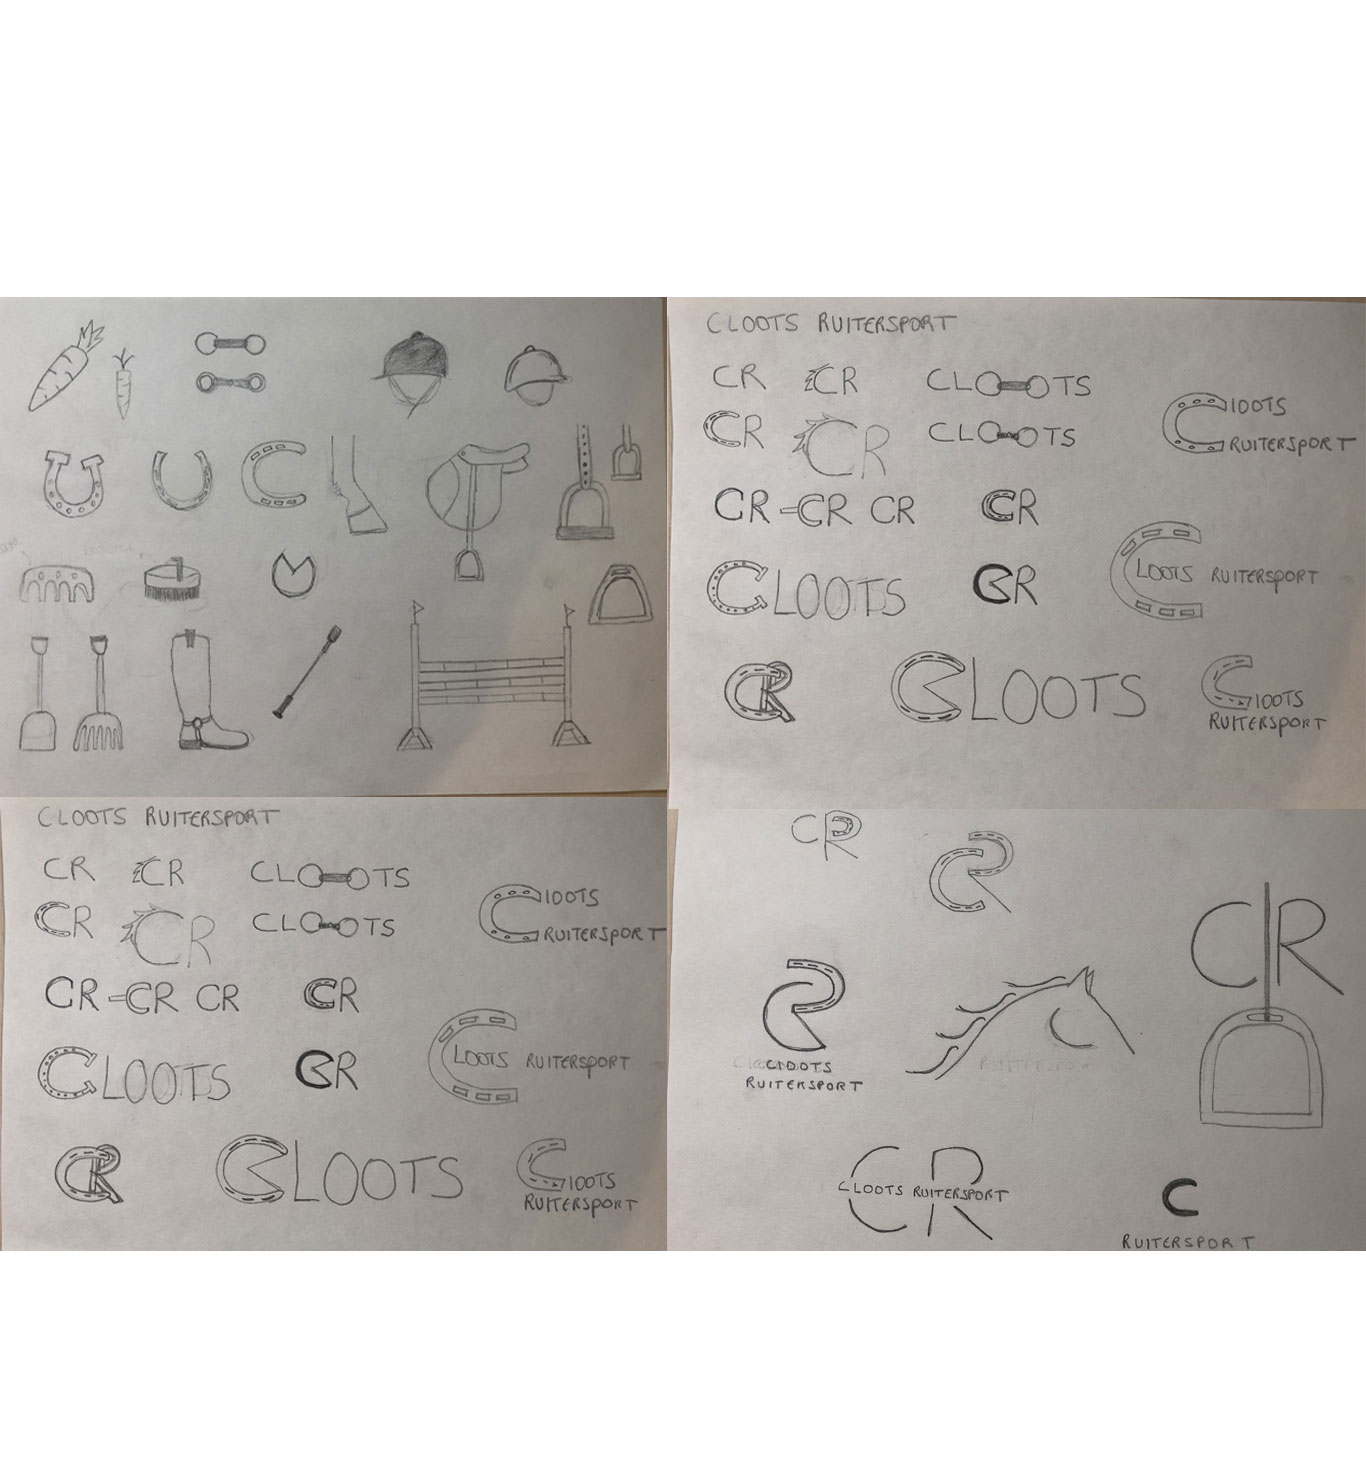 CLOOTS RUITERSPORT
CR CR CLOOTS
CR CR CLOOTS
CLOOTS
RUITERSPORT
CR CR CR CR
CLOOTS CR
CLOOTS RUITERSPORT
CR CLOOTS
CLOOTS
RUITERSPORT
CLOOTS RUITERSPORT
CR CR CLOOTS
CR CR CLOOTS
CLOOTS
RUITERSPORT
CR CR CR CR
CLOOTS CR
CLOOTS RUITERSPORT
CR CLOOTS
CLOOTS
RUITERSPORT
CR
CR
CR
CR
CLOOTS
RUITERSPORT
RUITERSPORT
CR
CLOOTS RUITERSPORT
C
RUITERSPORT